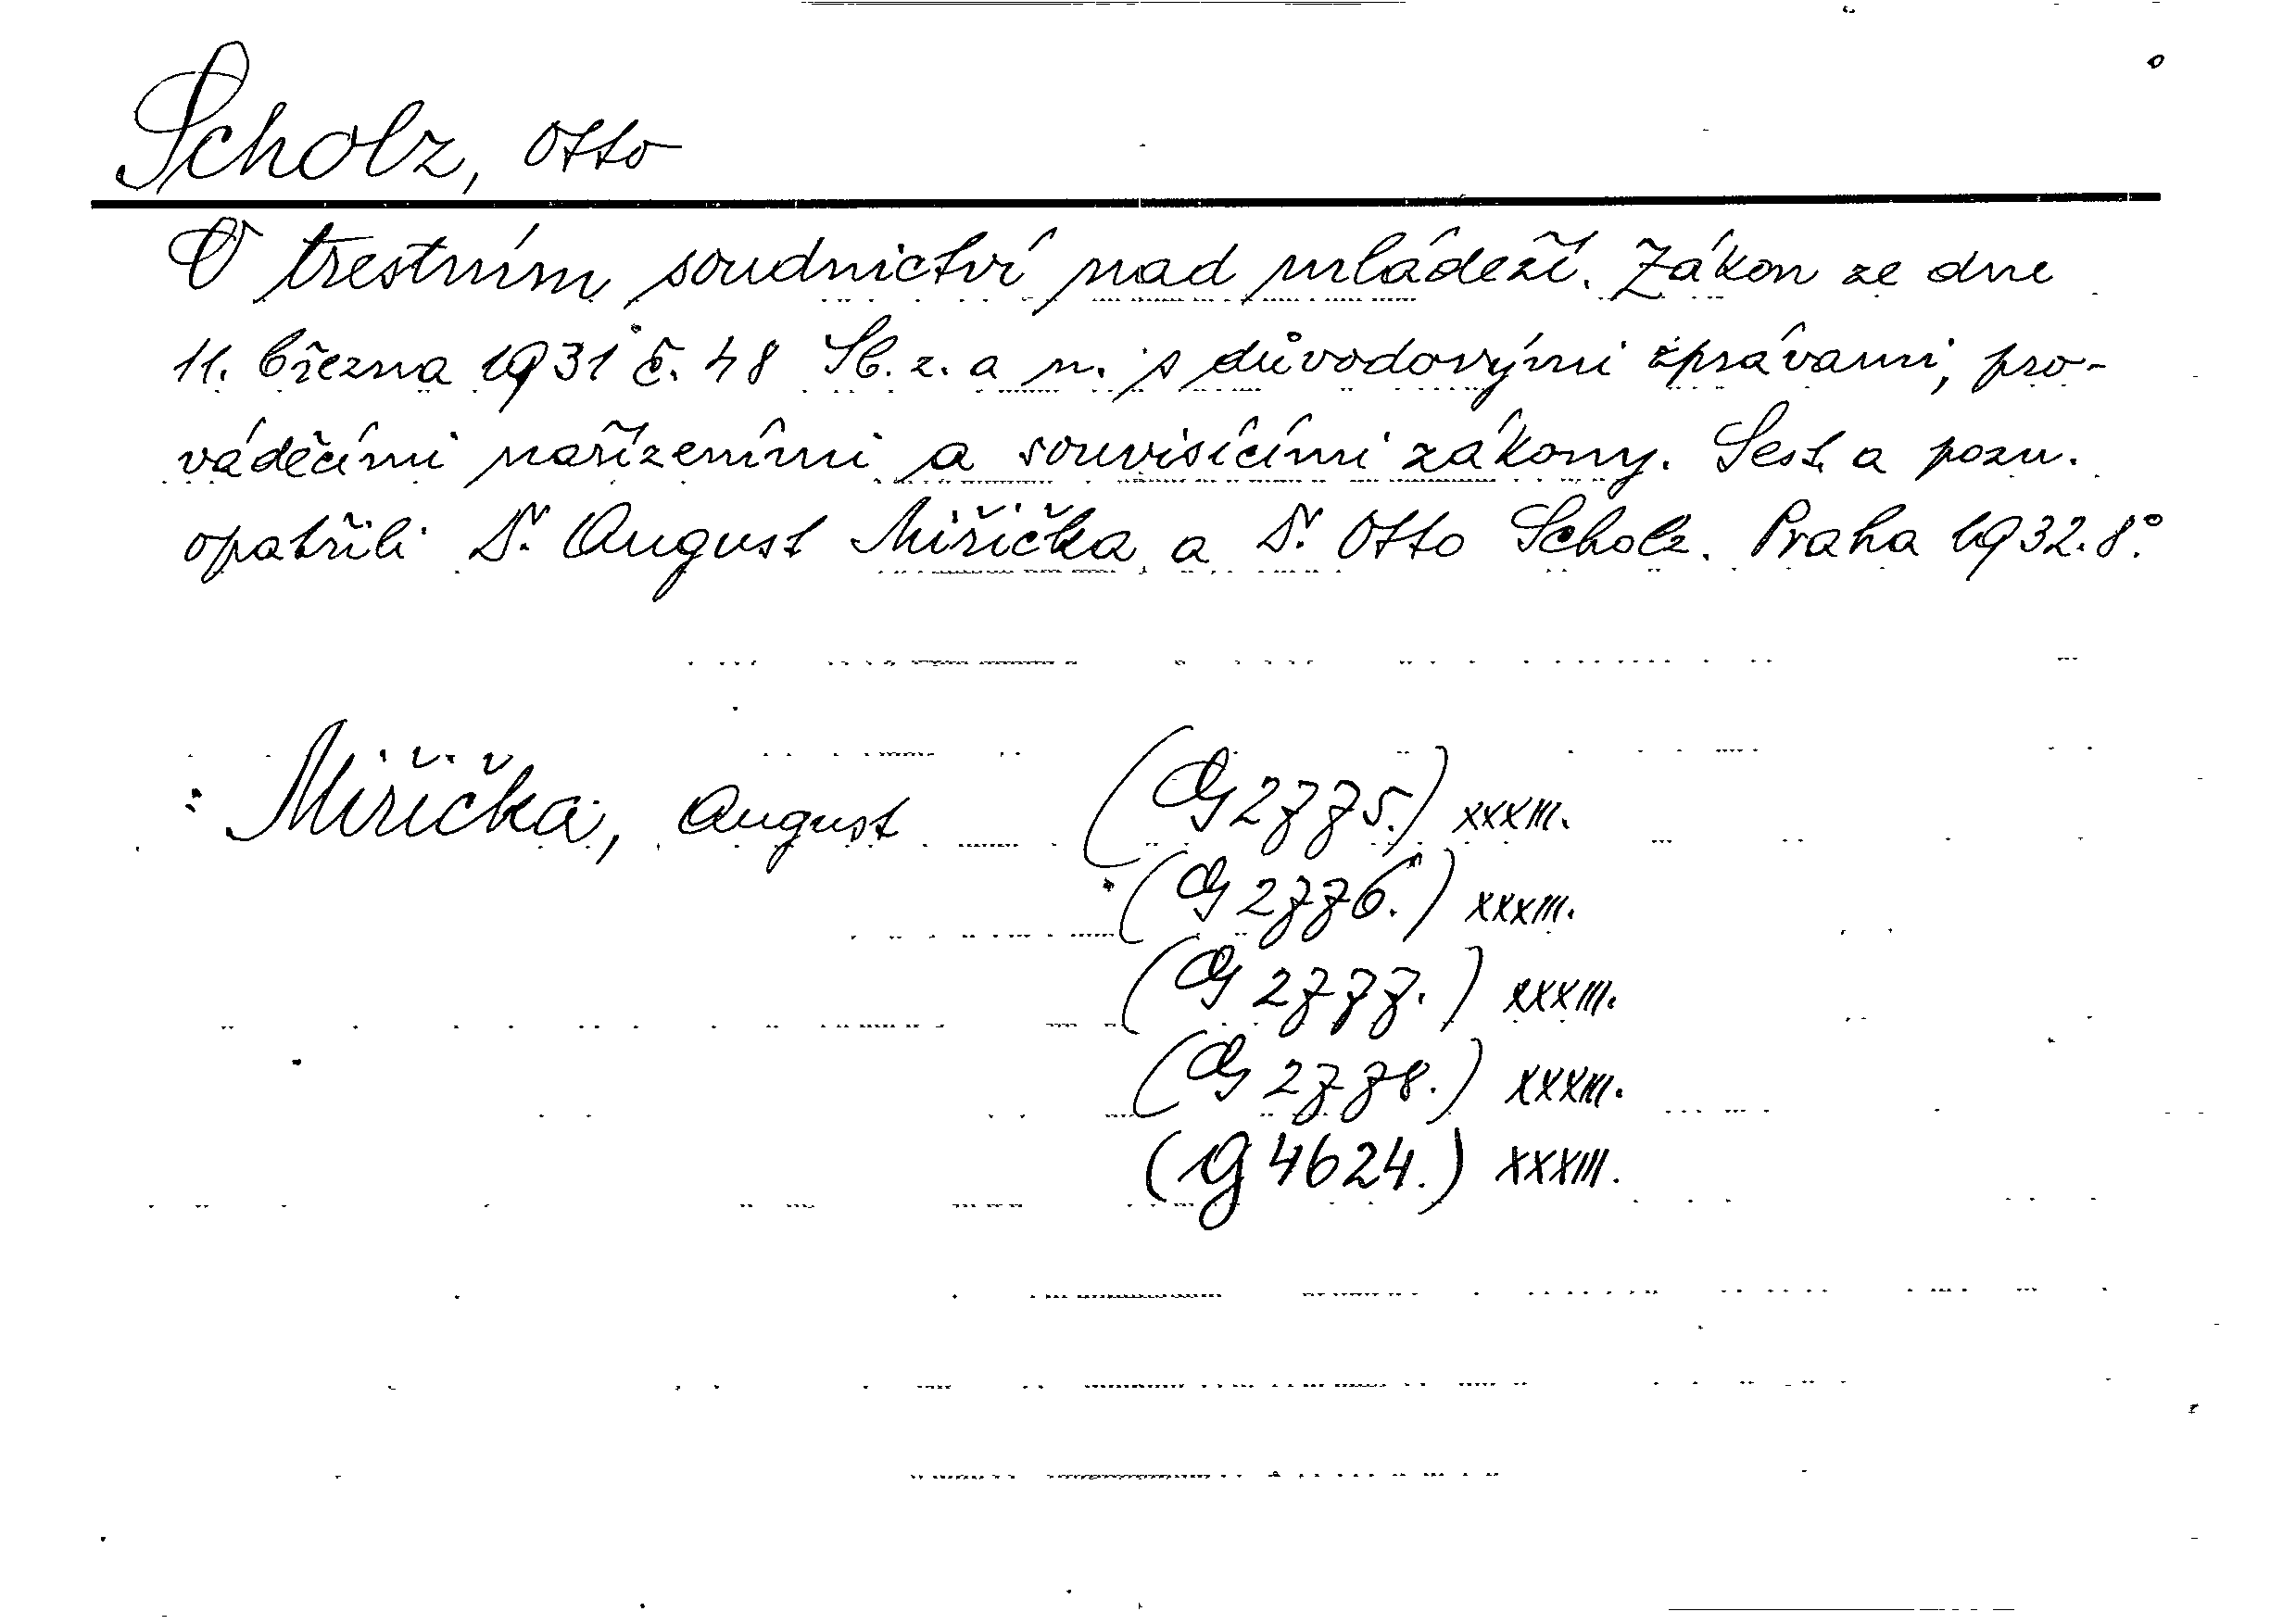 Scholz, Otto
O trestním soudnictví nad mládeží. Zákon ze dne
11. března 1931 č. 48 Sb. z. a n. s důvodovými zprávami, pro-
váděcími nařízeními a souvisícími zákony. Sest. a pozn.
opatřili Dr. August Miřička a Dr. Otto Scholz. Praha 1932. 8°.
: Miřička, August (G 2775.) XXXIII.
(G 2776.) XXXIII.
(G 2777.) XXXIII.
(G 2778.) XXXIII.
(G 4624.) XXXIII.